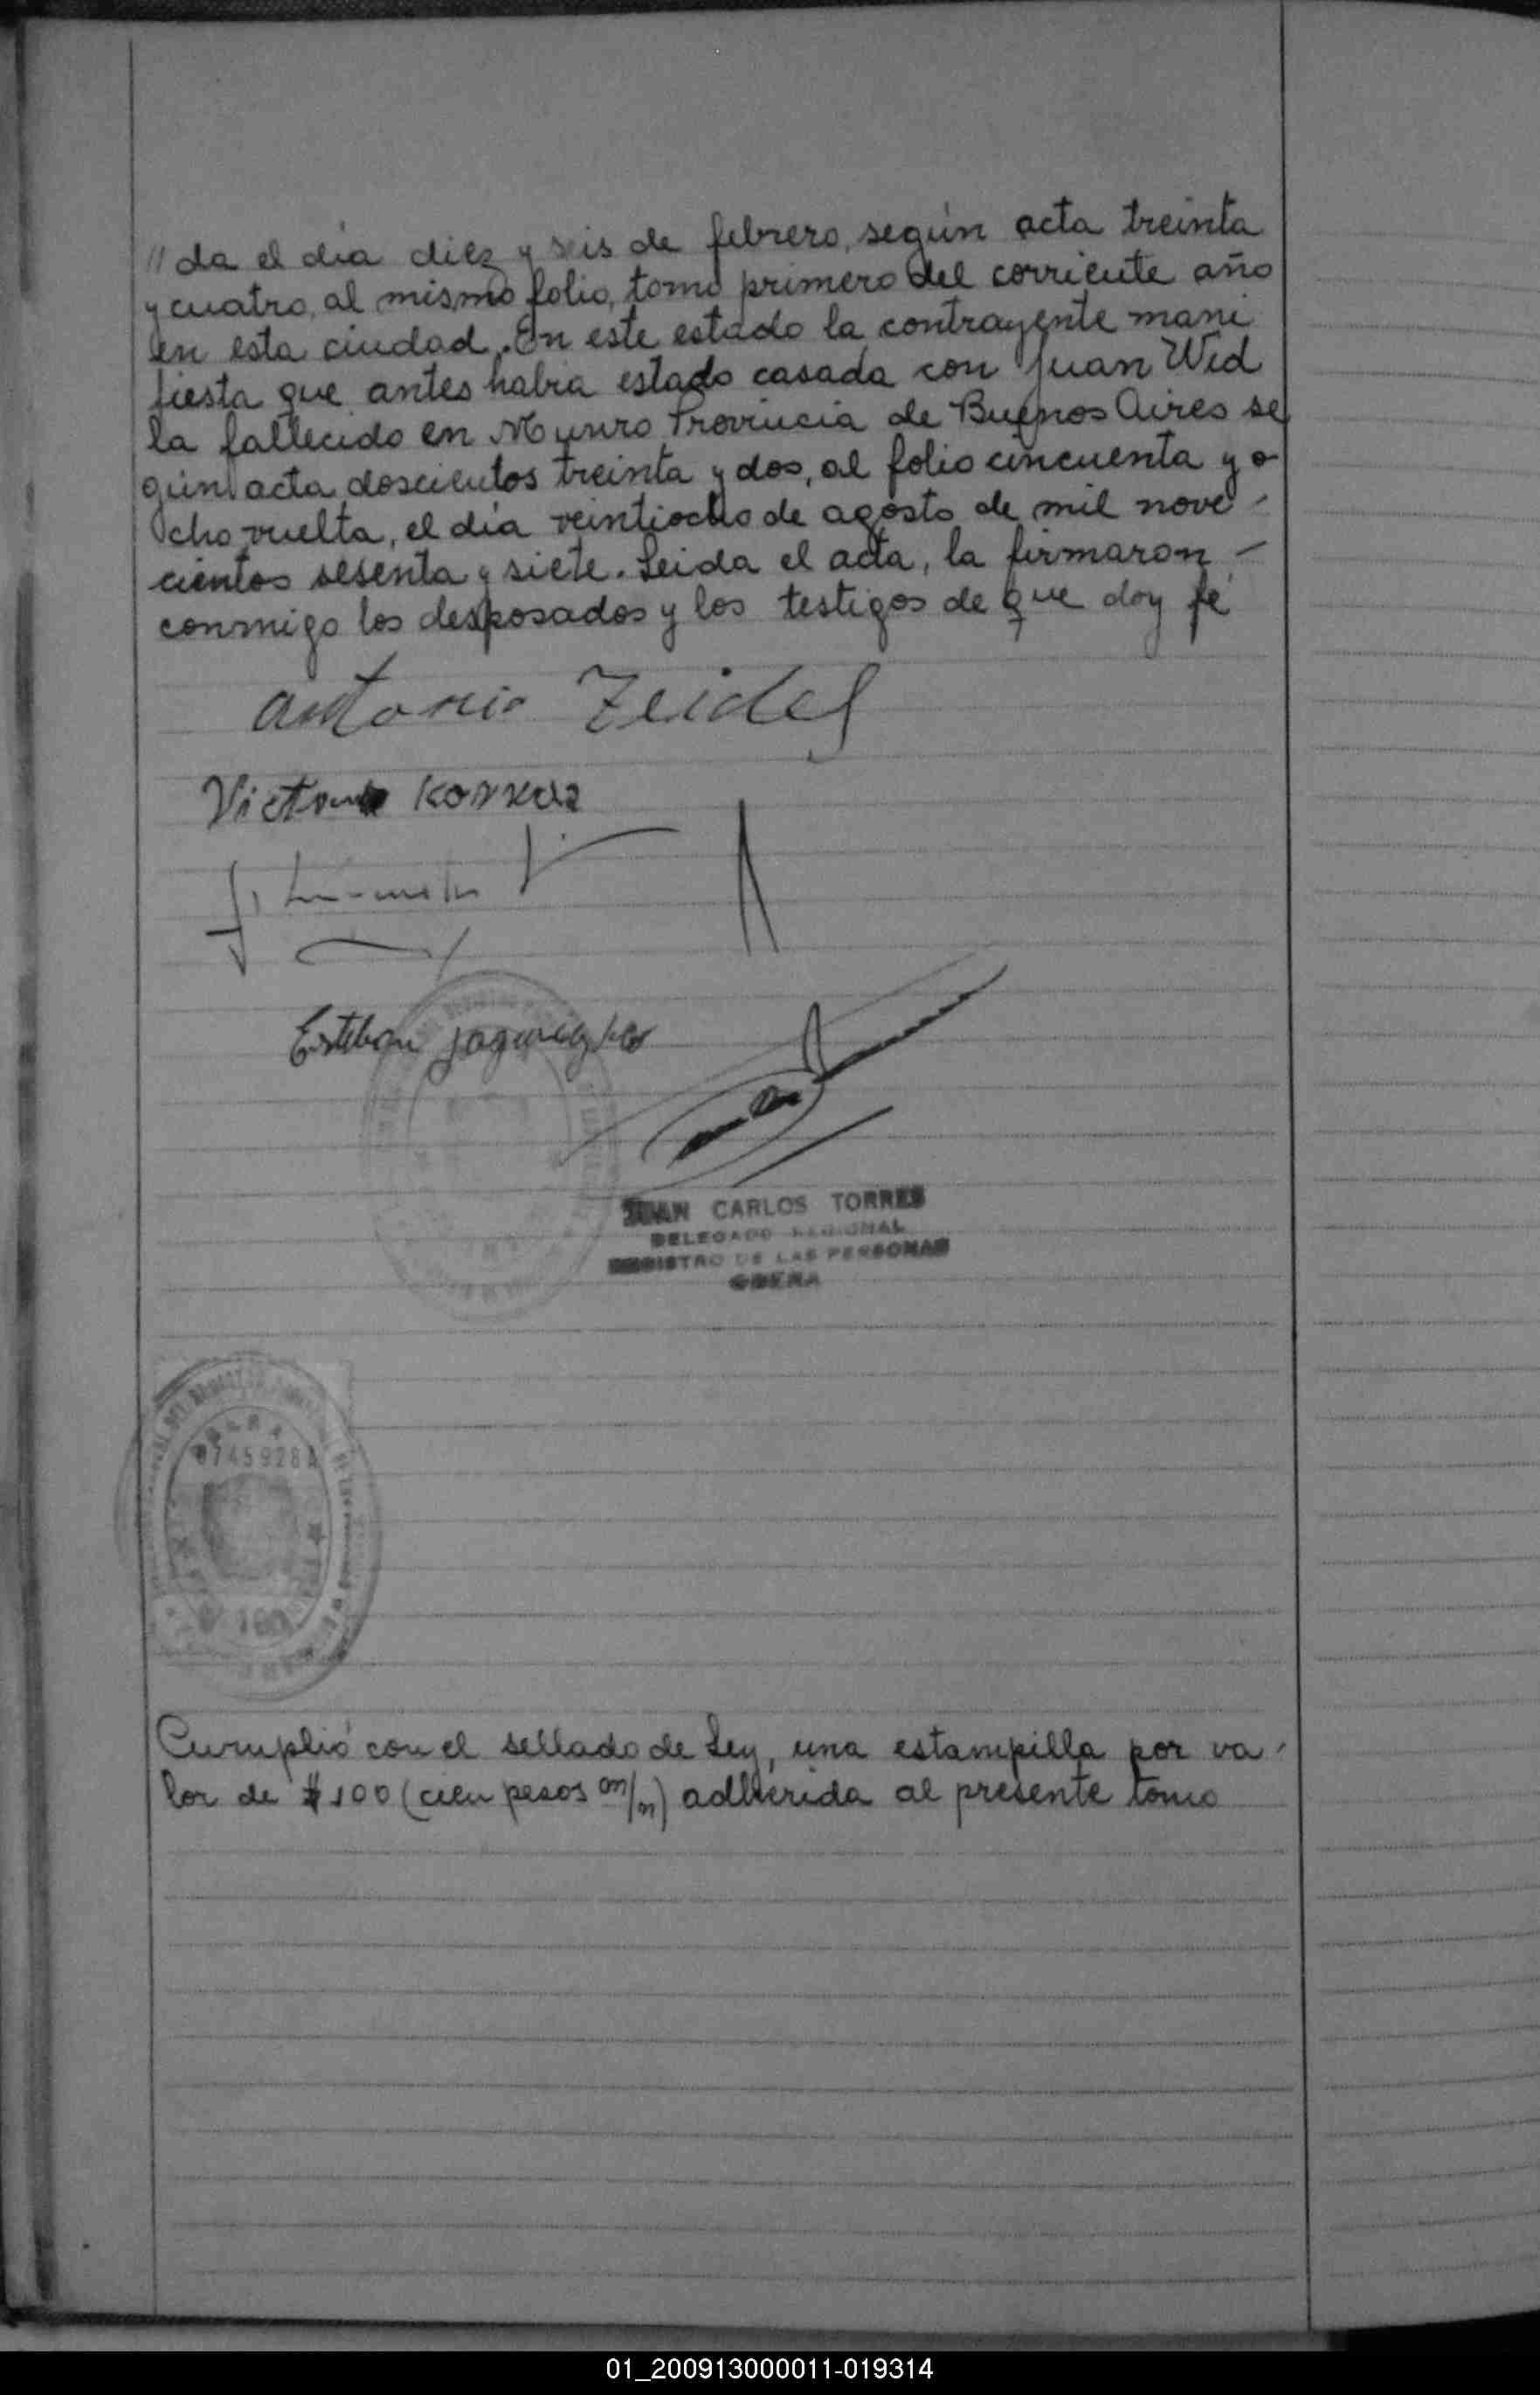 "da el día diez y seis de febrero, según acta treinta
y cuatro, al mismo folio, tomo primero del corriente año
en esta ciudad. En este estado la contrayente mani
fiesta que antes habia estado casada con Juan Wid
la fallecido en Munro Provincia de Buenos Aires se
gún acta doscientos treinta y dos, al folio cincuenta y o
cho vuelta, el día veintiocho de agosto de mil nove-
cientos sesenta y siete. Leida el acta, la firmaron -
conmigo los desposados y los testigos de que doy fé
Antonio Zeidel
Esteban
JUAN CARLOS TORRES
DELEGADO REGIONAL
REGISTRO DE LAS PERSONAS
OBERA
OBERA
0745928A
100
Cumplió con el sellado de Ley, una estampilla por va-
lor de $100 (cien pesos m/n) adherida al presente tomo
01_200913000011-019314